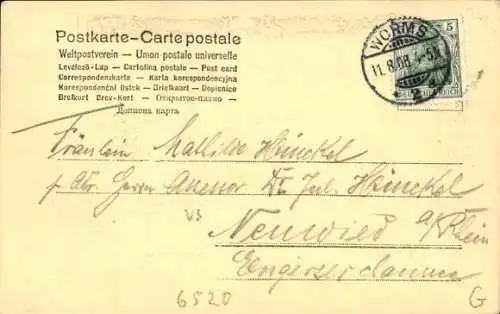 Postkarte - Carte postale
Weltpostverein — Union postale universelle
Levelező-Lap — Cartolina postale — Post card
Correspondenzkarte — Karta korespondencyjna
Korespondenční lístek — Briefkaart — Dopisnice
Brefkort Brev-Kort — Открытое письмо —
Дописна карта
WORMS
11.8.03. 4-5N
* 2
5
Fräulein Mathilde Heinckel
p. Adr. Herrn Assessor Dr. Jul. Heinckel
V3
Neuwied a/Rhein
6520
G